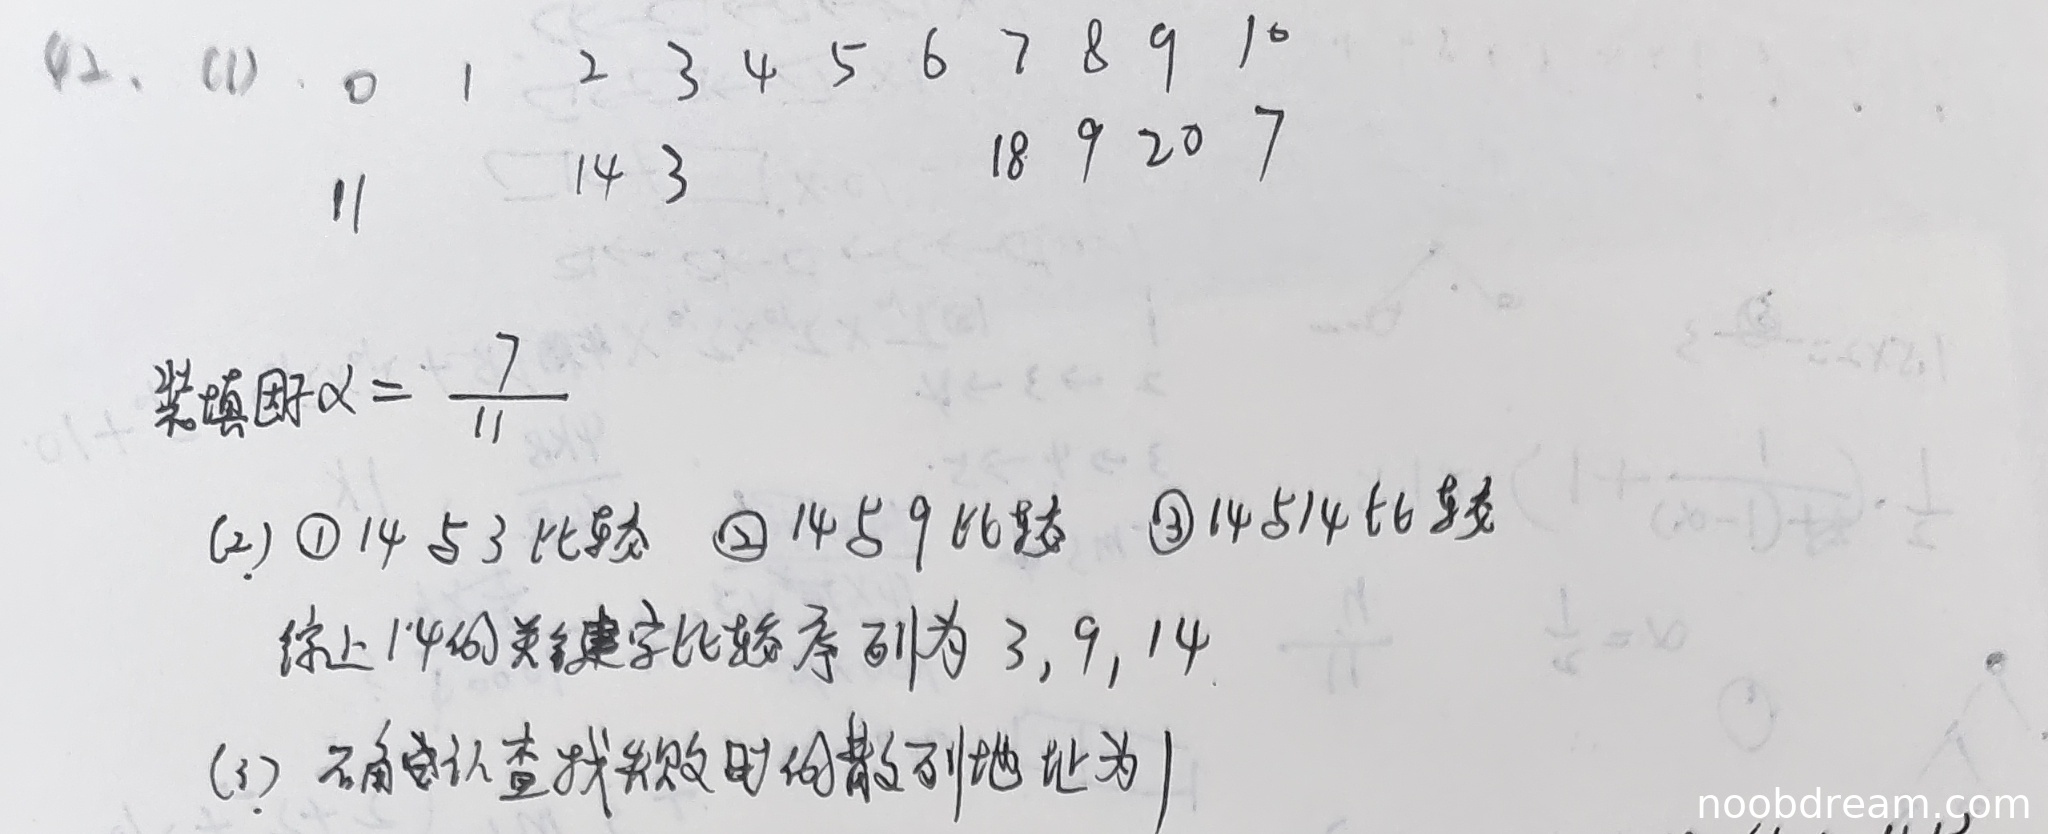 42. (1). 0 1 2 3 4 5 6 7 8 9 10
11 14 3 18 9 20 7
装填因子α = 7/11
(2) ① 14与3比较 ② 14与9比较 ③ 14与14比较
综上14的关键字比较序列为 3, 9, 14.
(3) 确认查找失败时的散列地址为1
noobdream.com